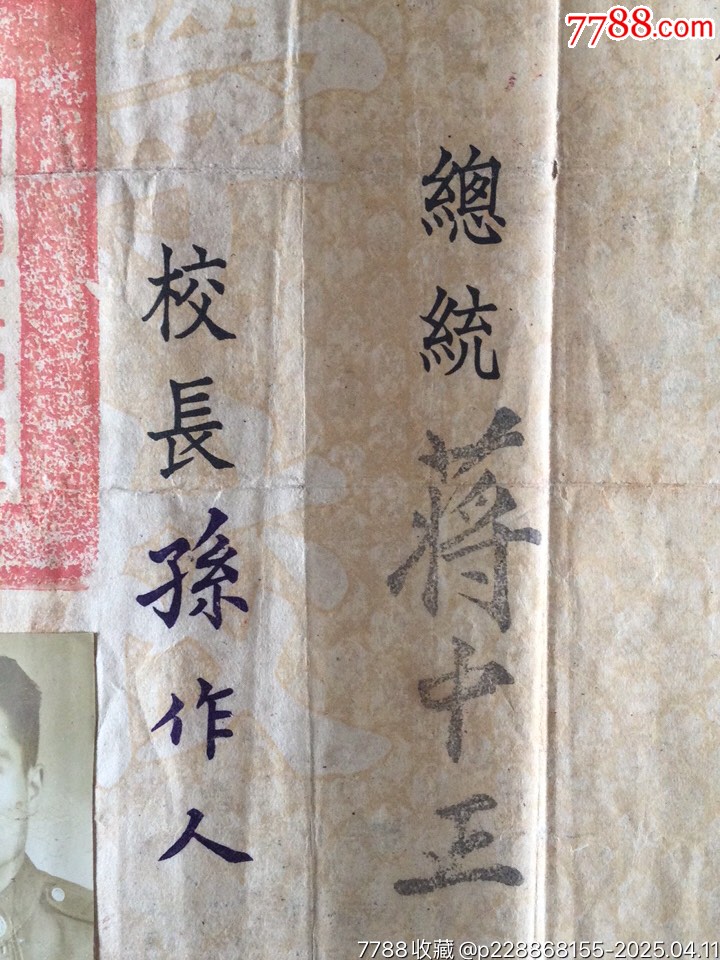 7788.com
總統蔣中正
校長孫作人
7788收藏 @p228868155-2025.04.11